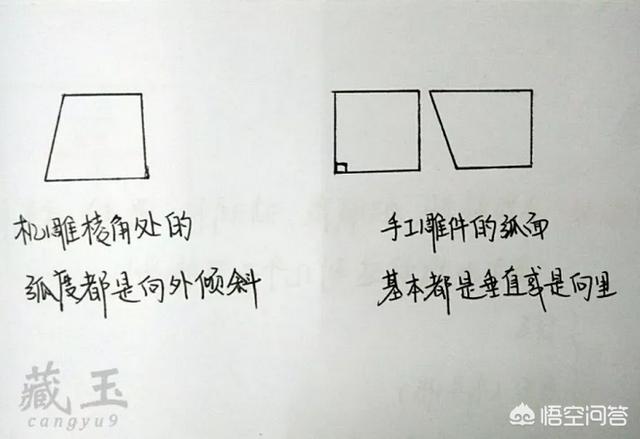 机雕棱角处的
弧度都是向外倾斜
手工雕件的弧面
基本都是垂直或是向里
藏玉
cangyu9
悟空问答